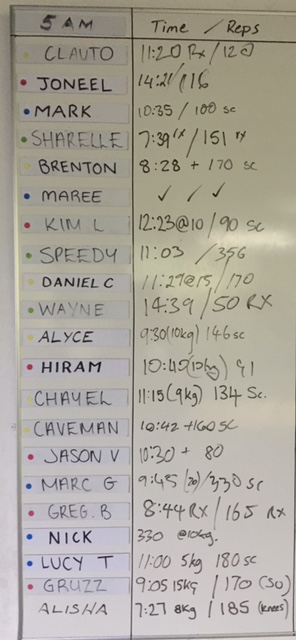 5 AM Time / Reps
CLAUTO 11:20 Rx / 120
JONEEL 14:21 / 116
MARK 10:35 / 100 sc
SHARELLE 7:39 rx / 151 rx
BRENTON 8:28 + 170 sc
MAREE ✓ / ✓ / ✓
KIM L 12:23@10 / 90 sc
SPEEDY 11:03 / 356
DANIEL C 11:27@15 / 170
WAYNE 14:39 / 50 RX
ALYCE 9:30 (10kg) 146 sc
HIRAM 10:40 91
CHAYEL 11:15 (9kg) 134 Sc.
CAVEMAN 10:42 +160 SC
JASON V 10:30 + 80
MARC G 9:45 (20) / 330 sc
GREG. B 8:44 RX / 165 RX
NICK 330 @10kg.
LUCY T 11:00 5kg 180 sc
GRUZZ 9:05 15kg / 170 (SU)
ALISHA 7:27 8kg / 185 (knees)